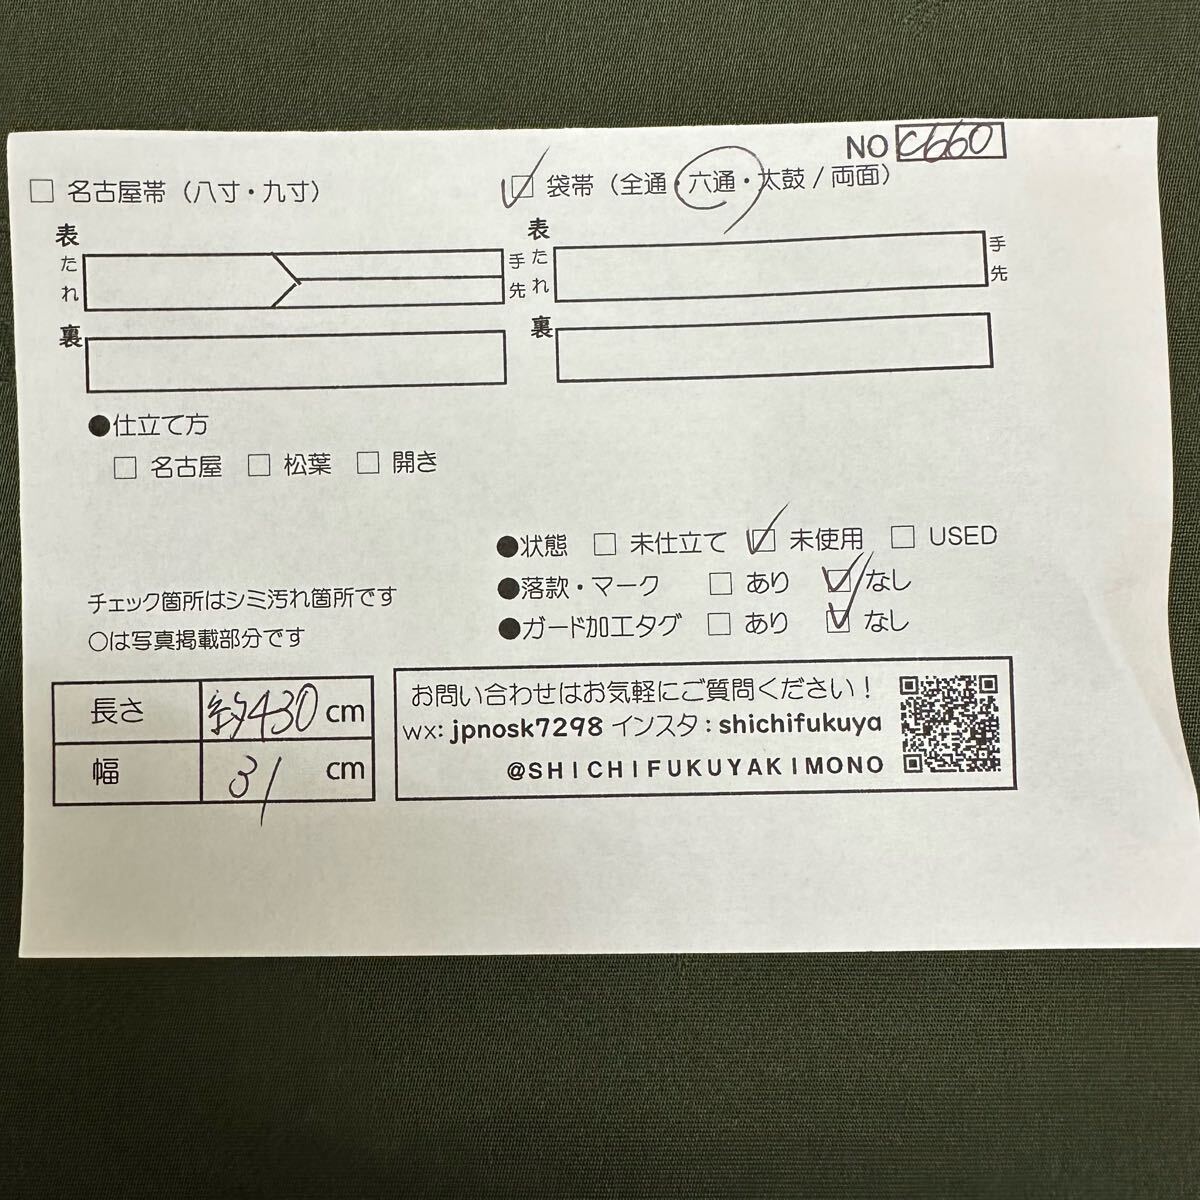 NO c660
□ 名古屋帯（八寸・九寸）
☑ 袋帯（全通・六通・太鼓/両面）
表
たれ
手先
裏
表
たれ
手先
裏
●仕立て方
□ 名古屋 □ 松葉 □ 開き
●状態 □ 未仕立て ☑ 未使用 □ USED
●落款・マーク □ あり ☑ なし
●ガード加工タグ □ あり ☑ なし
チェック箇所はシミ汚れ箇所です
○は写真掲載部分です
長さ 約430cm
幅 31 cm
お問い合わせはお気軽にご質問ください！
wx: jpnosk7298 インスタ：shichifukuya
@SHICHIFUKUYAKIMONO